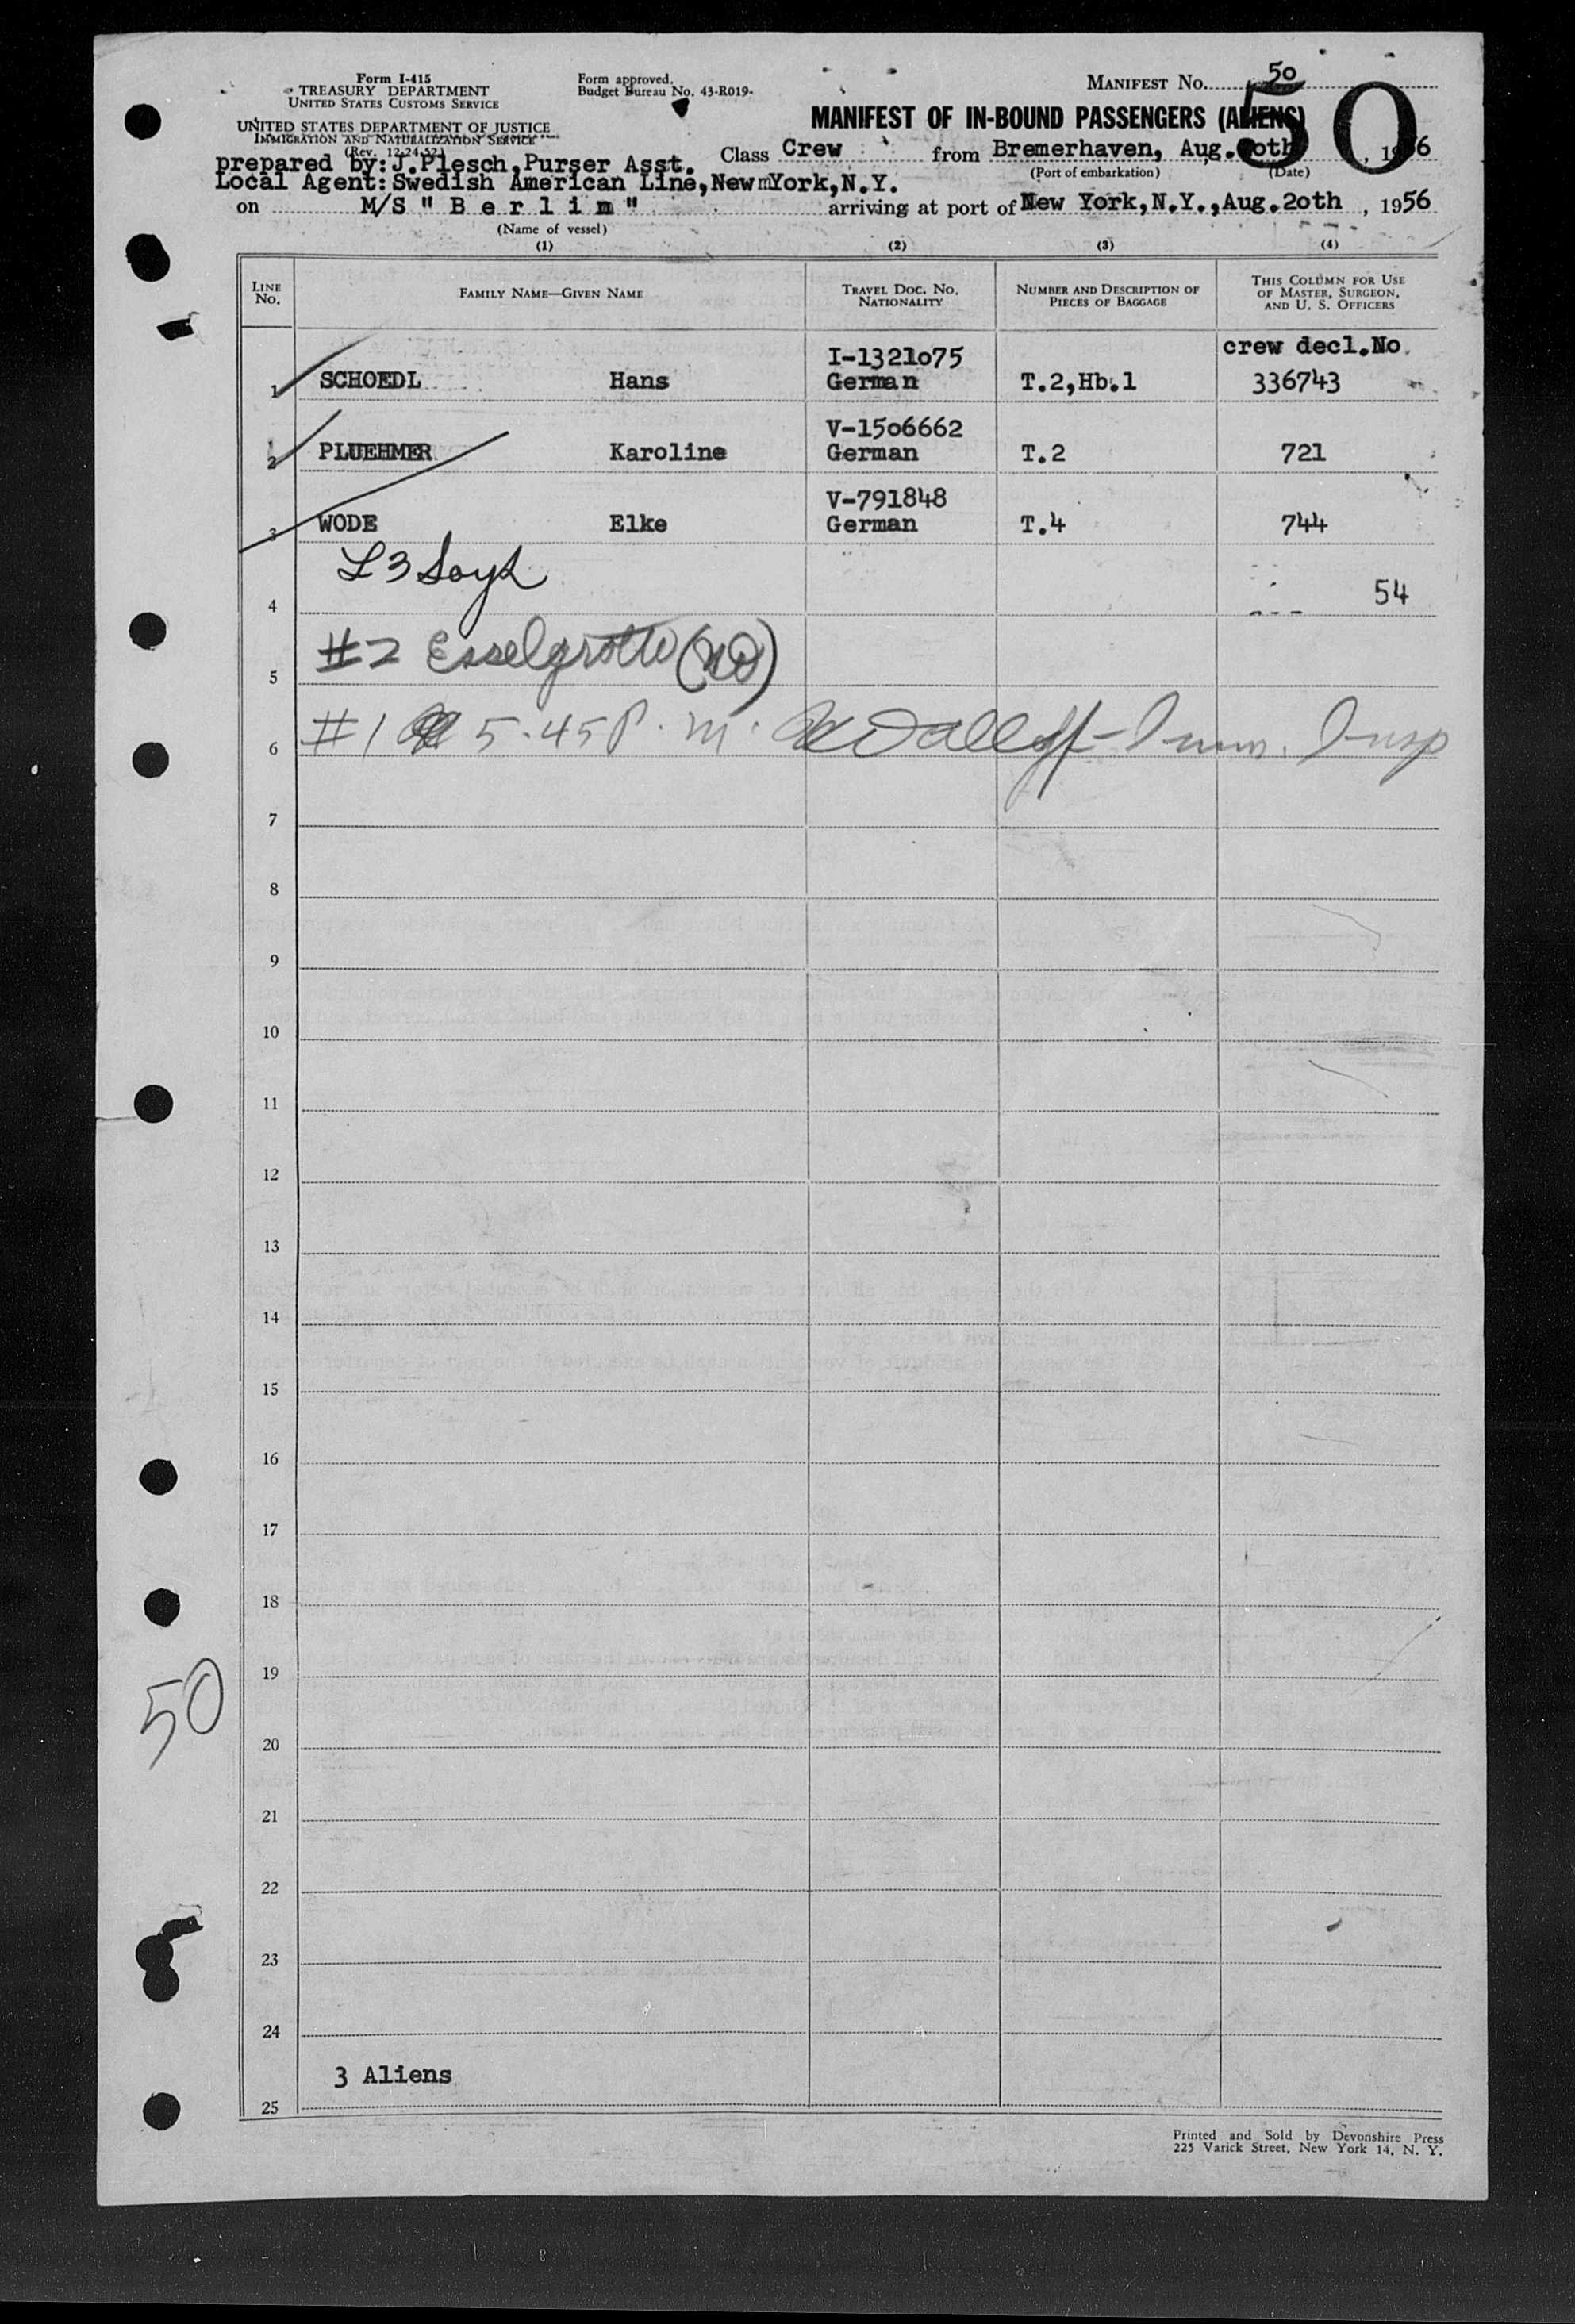 Form I-415
TREASURY DEPARTMENT
UNITED STATES CUSTOMS SERVICE
UNITED STATES DEPARTMENT OF JUSTICE
IMMIGRATION AND NATURALIZATION SERVICE
(Rev. 12-24-52)
Form approved.
Budget Bureau No. 43-R019-
MANIFEST No. 50
50
MANIFEST OF IN-BOUND PASSENGERS (ALIENS)
prepared by:J.Plesch,Purser Asst. Class Crew from Bremerhaven, Aug. , 1956
(Port of embarkation) (Date)
Local Agent:Swedish American Line,New York,N.Y.
on M/S " B e r l i n " arriving at port of New York,N.Y.,Aug.2oth , 1956
(Name of vessel)
(1) (2) (3) (4)
LINE No. FAMILY NAME—GIVEN NAME TRAVEL DOC. No. NATIONALITY NUMBER AND DESCRIPTION OF PIECES OF BAGGAGE THIS COLUMN FOR USE OF MASTER, SURGEON, AND U. S. OFFICERS
crew decl.No.
I-1321o75
1 SCHOEDL Hans German T.2,Hb.1 336743
V-15o6662
2 PLUEHMER Karoline German T.2 721
V-791848
3 WODE Elke German T.4 744
L3
4 54
#2
5
#1 5.45 P.m. Imm. Insp
6
7
8
9
10
11
12
13
14
15
16
17
18
19
50
20
21
22
23
24
3 Aliens
25
Printed and Sold by Devonshire Press
225 Varick Street, New York 14, N. Y.